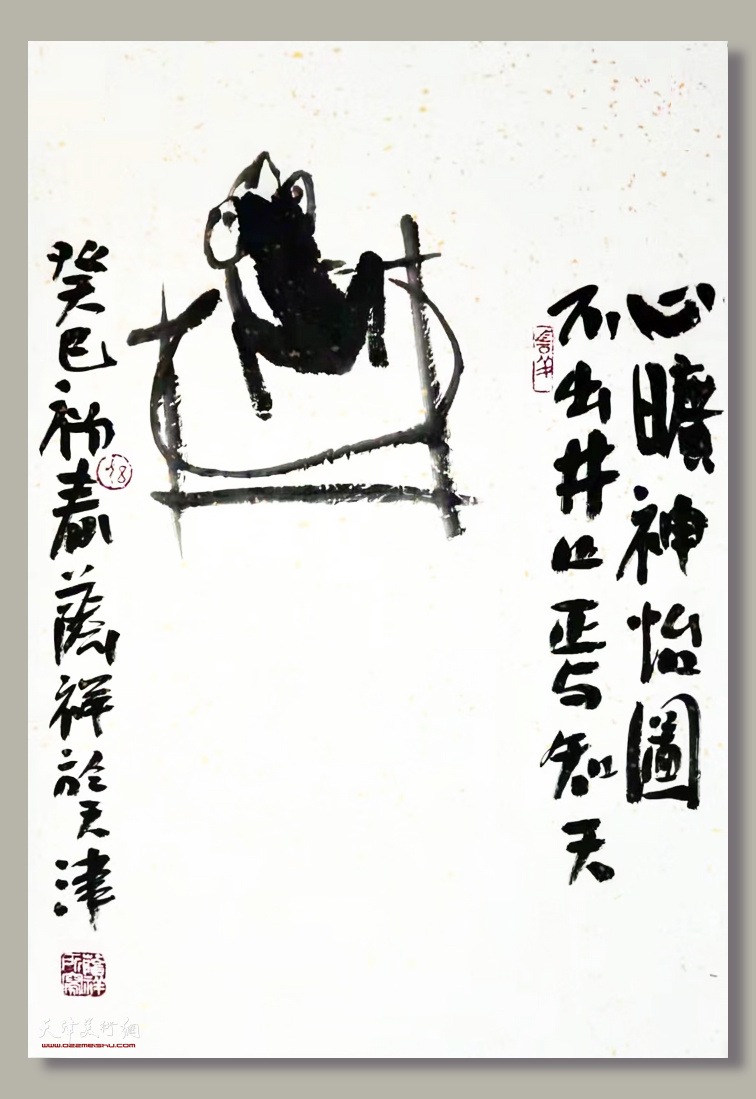 心曠神怡圖
不出井口焉知天
癸巳初春蔭祥於天津
天津美術網
www.022meishu.com